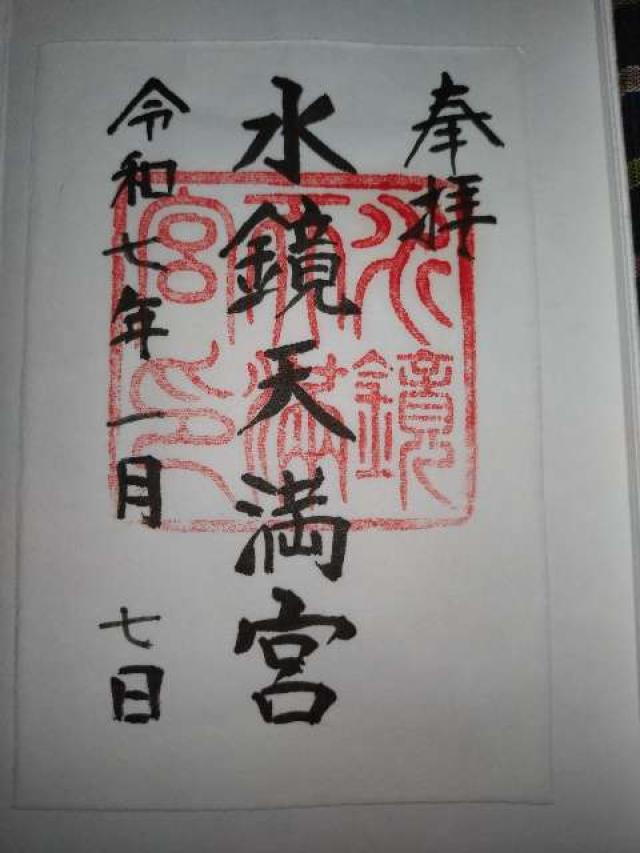 奉拝
水鏡天満宮
令和七年一月七日
水鏡
天満
宮印